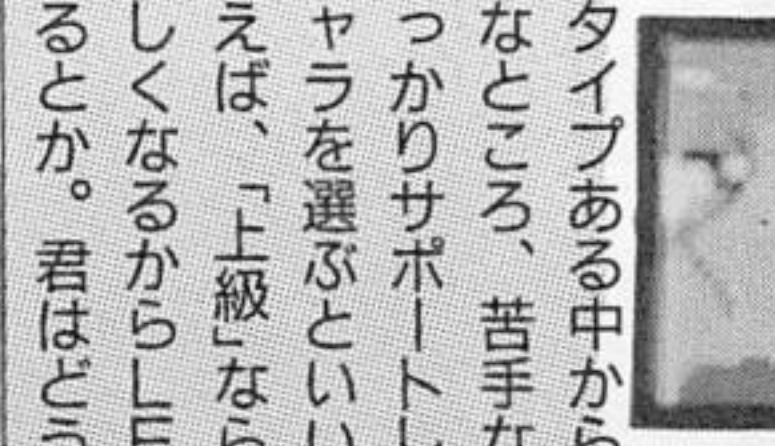 タイプある中から
なところ、苦手な
っかりサポートし
ャラを選ぶといい
えば、「上級」なら
しくなるからLE
るとか。君はどう